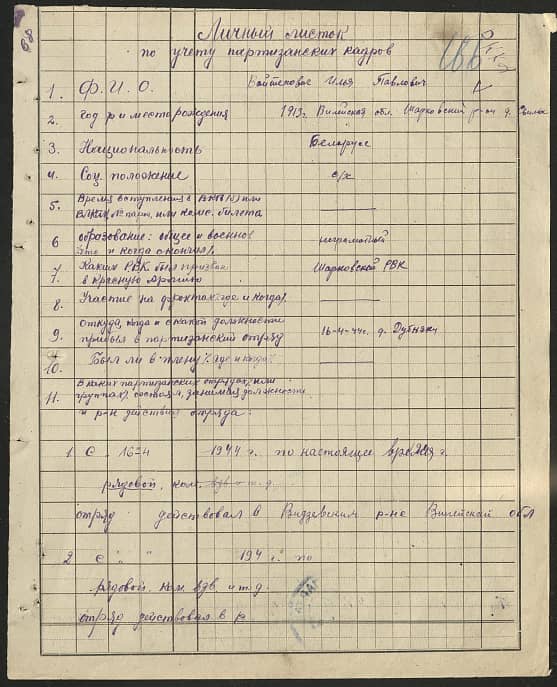 68
Личный листок
по учету партизанских кадров
1. Ф. И. О. Войтехович Илья Павлович
2. год р и место рождения 1913г. Вилейской обл. Шарковский р-он д.
3. Национальность Белорус
4. Соц. положение с/х
5. Время вступления в ВКП(б) или
ВЛКСМ № парт. или комс. билета ———
6 образование: общее и военное неграмотный
что и когда окончил.
7. Каким РВК был призван Шарковской РВК
в Красную Армию
8. Участие на фронтах: где и когда. ———
9. Откуда, когда и с какой должности 16-4-44г. д.
прибыл в партизанский отряд
10. Был ли в плену где и когда ———
11. В каких партизанских отрядах, или
группах, состоял, занимал должности
и р-н действия отряда:
1 С 16-4 1944 г. по настоящее время г.
рядовой, ком. вдв и т. д.
отряд действовал в Видзевским р-не Вилейской обл
2 с " " 194 г. по
рядовой, ком. вдв. и т. д.
отряд действовал в р